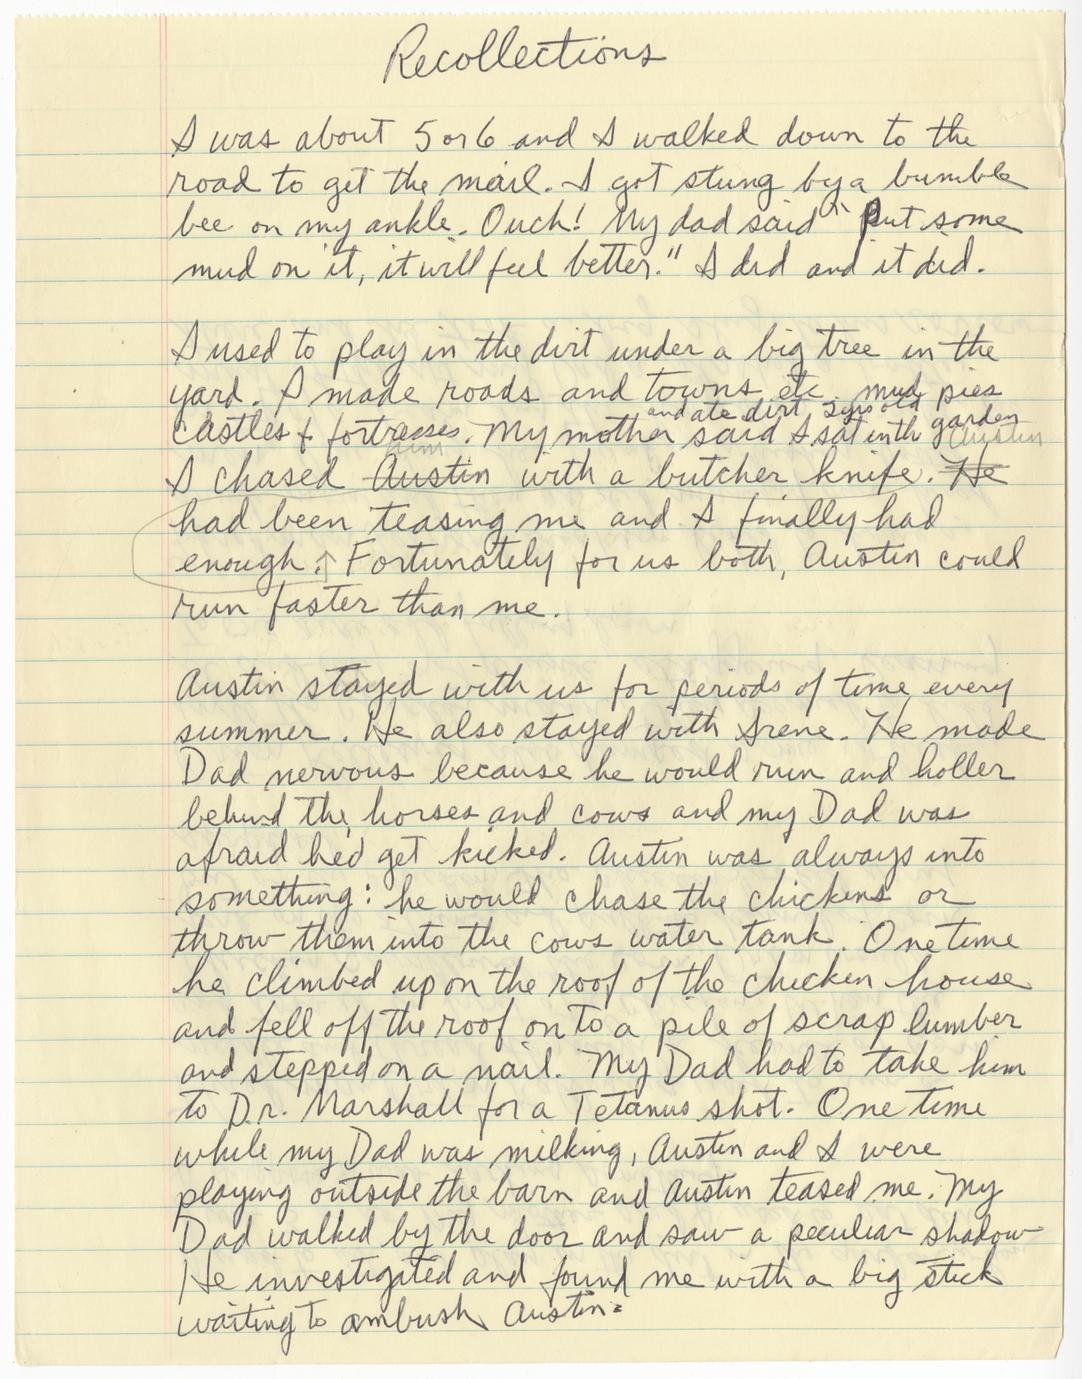 Recollections
I was about 5 or 6 and I walked down to the
road to get the mail. I got stung by a bumble
bee on my ankle. Ouch! My dad said "put some
mud on it, it will feel better." I did and it did.
I used to play in the dirt under a big tree in the
yard. I made roads and towns etc mud pies
and ate dirt 2 yrs old
castles & fortresses. My mother said I sat in th garden
him Austin
I chased Austin with a butcher knife. He
had been teasing me and I finally had
enough. Fortunately for us both, Austin could
run faster than me.
Austin stayed with us for periods of time every
summer. He also stayed with Irene. He made
Dad nervous because he would run and holler
behind the horses and cows and my Dad was
afraid he'd get kicked. Austin was always into
something: he would chase the chickens or
throw them into the cows water tank. One time
he climbed up on the roof of the chicken house
and fell off the roof on to a pile of scrap lumber
and stepped on a nail. My Dad had to take him
to Dr. Marshall for a Tetanus shot. One time
while my Dad was milking, Austin and I were
playing outside the barn and Austin teased me. My
Dad walked by the door and saw a peculiar shadow
He investigated and found me with a big stick
waiting to ambush Austin.